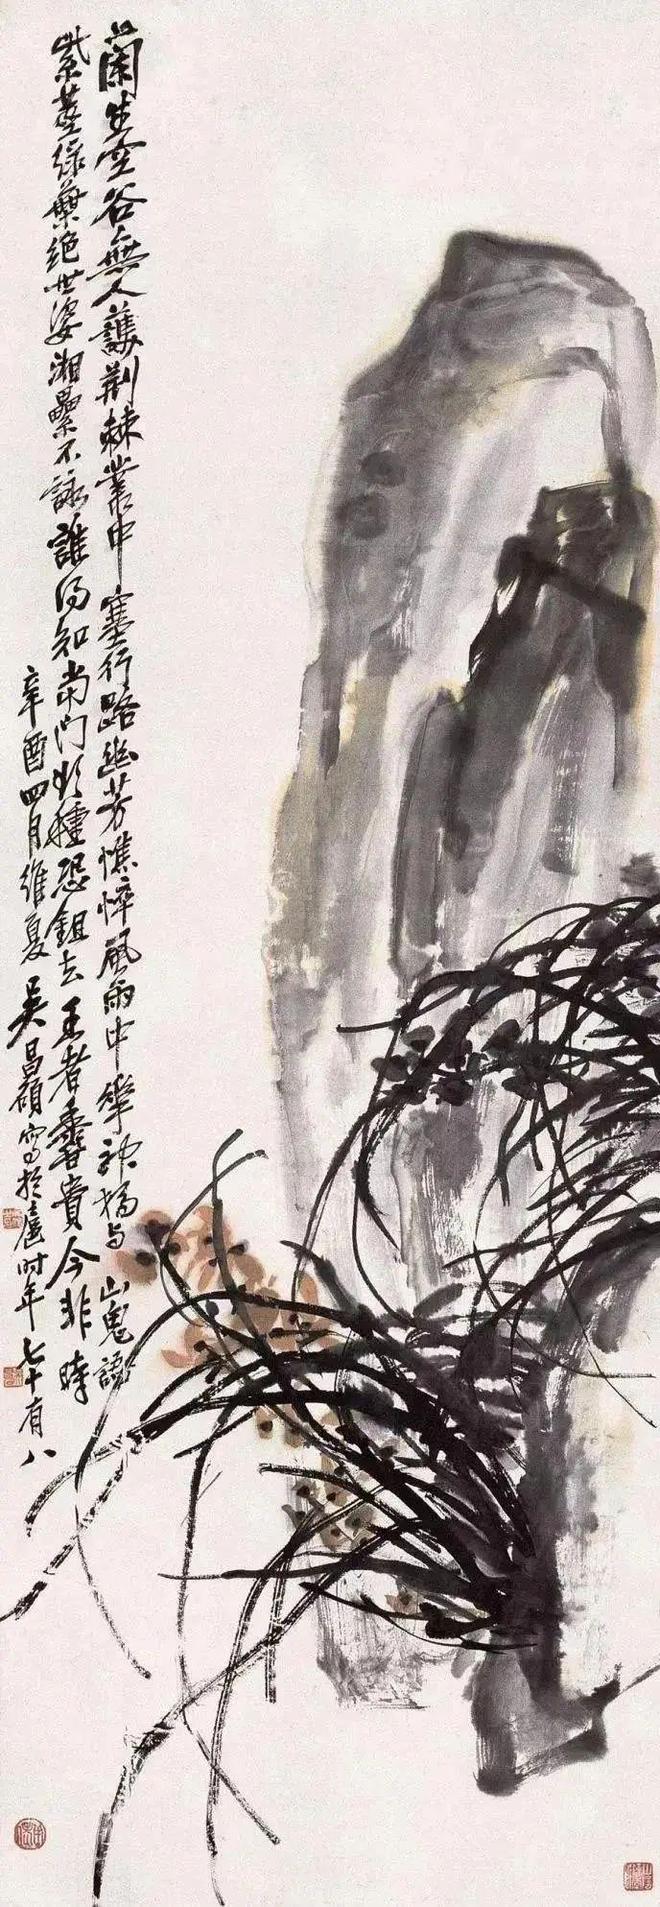 蘭生空谷無人護荆棘叢中塞行路幽芳憔悴風雨中華神獨与山鬼語
紫莖綠葉絕世姿湘纍不詠誰得知當門欲種恐鉏去王者香貴今非時
辛酉四月維夏吳昌碩寫於扈時年七十有八